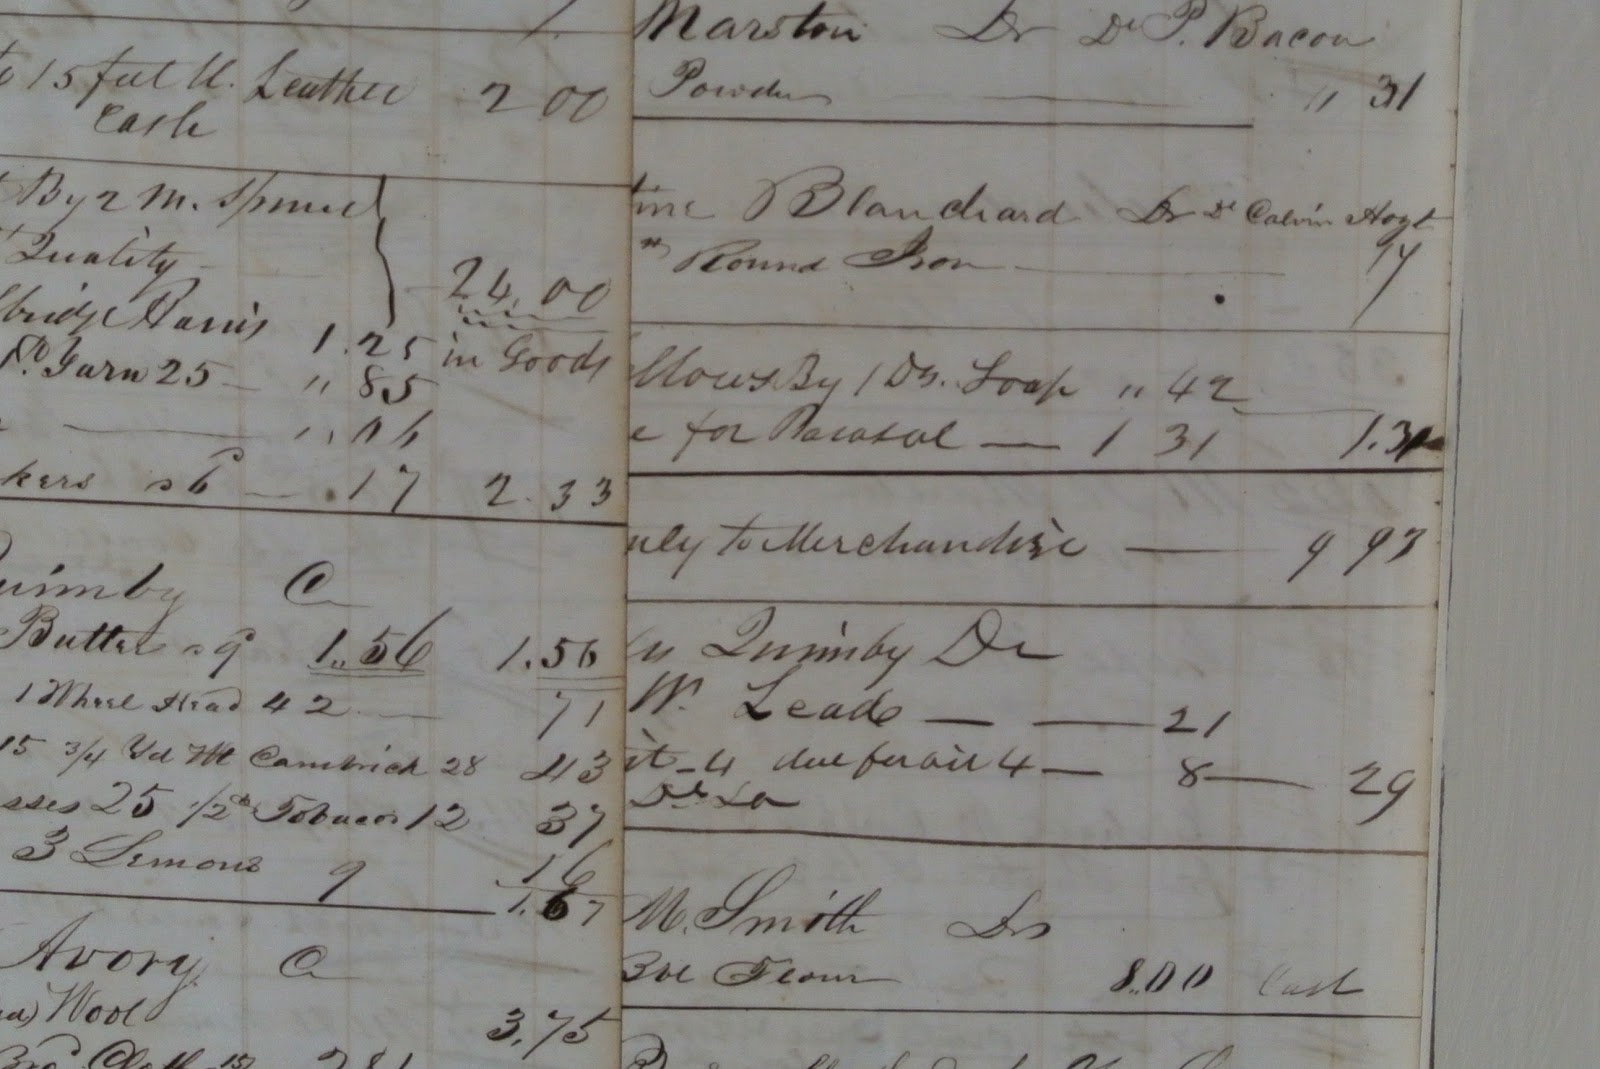 15 feet U. Leather 2 00
Cash
By 2 M.
Quality
24.00
Harris 1.25 in Goods
Yarn 25 — " 85
— " 06
kers 6 — .17 2.33
uimby Cr
Butter 9 1.56 1.56
1 Wheel Head 42 — 71
15 3/4 Yd Cambrick 28 43
sses 25 1/2 Tobacco 12 37
3 Lemons 9 16
1.67
Avory Cr
Wool 3.75
Marston Dr De P. Bacon
Powder — " 31
tine Blanchard Dr De Calvin Hoyt
Round Iron — 17
llows By 1 Soap " 42
e for Parasol — 1 31 1.31
uly to Merchandise — 9 93
Quimby Dr
W. Lead — — 21
it - 4 due for oil 4 — 8 — 29
M. Smith Dr
Bbl Flour 8.00 Cash